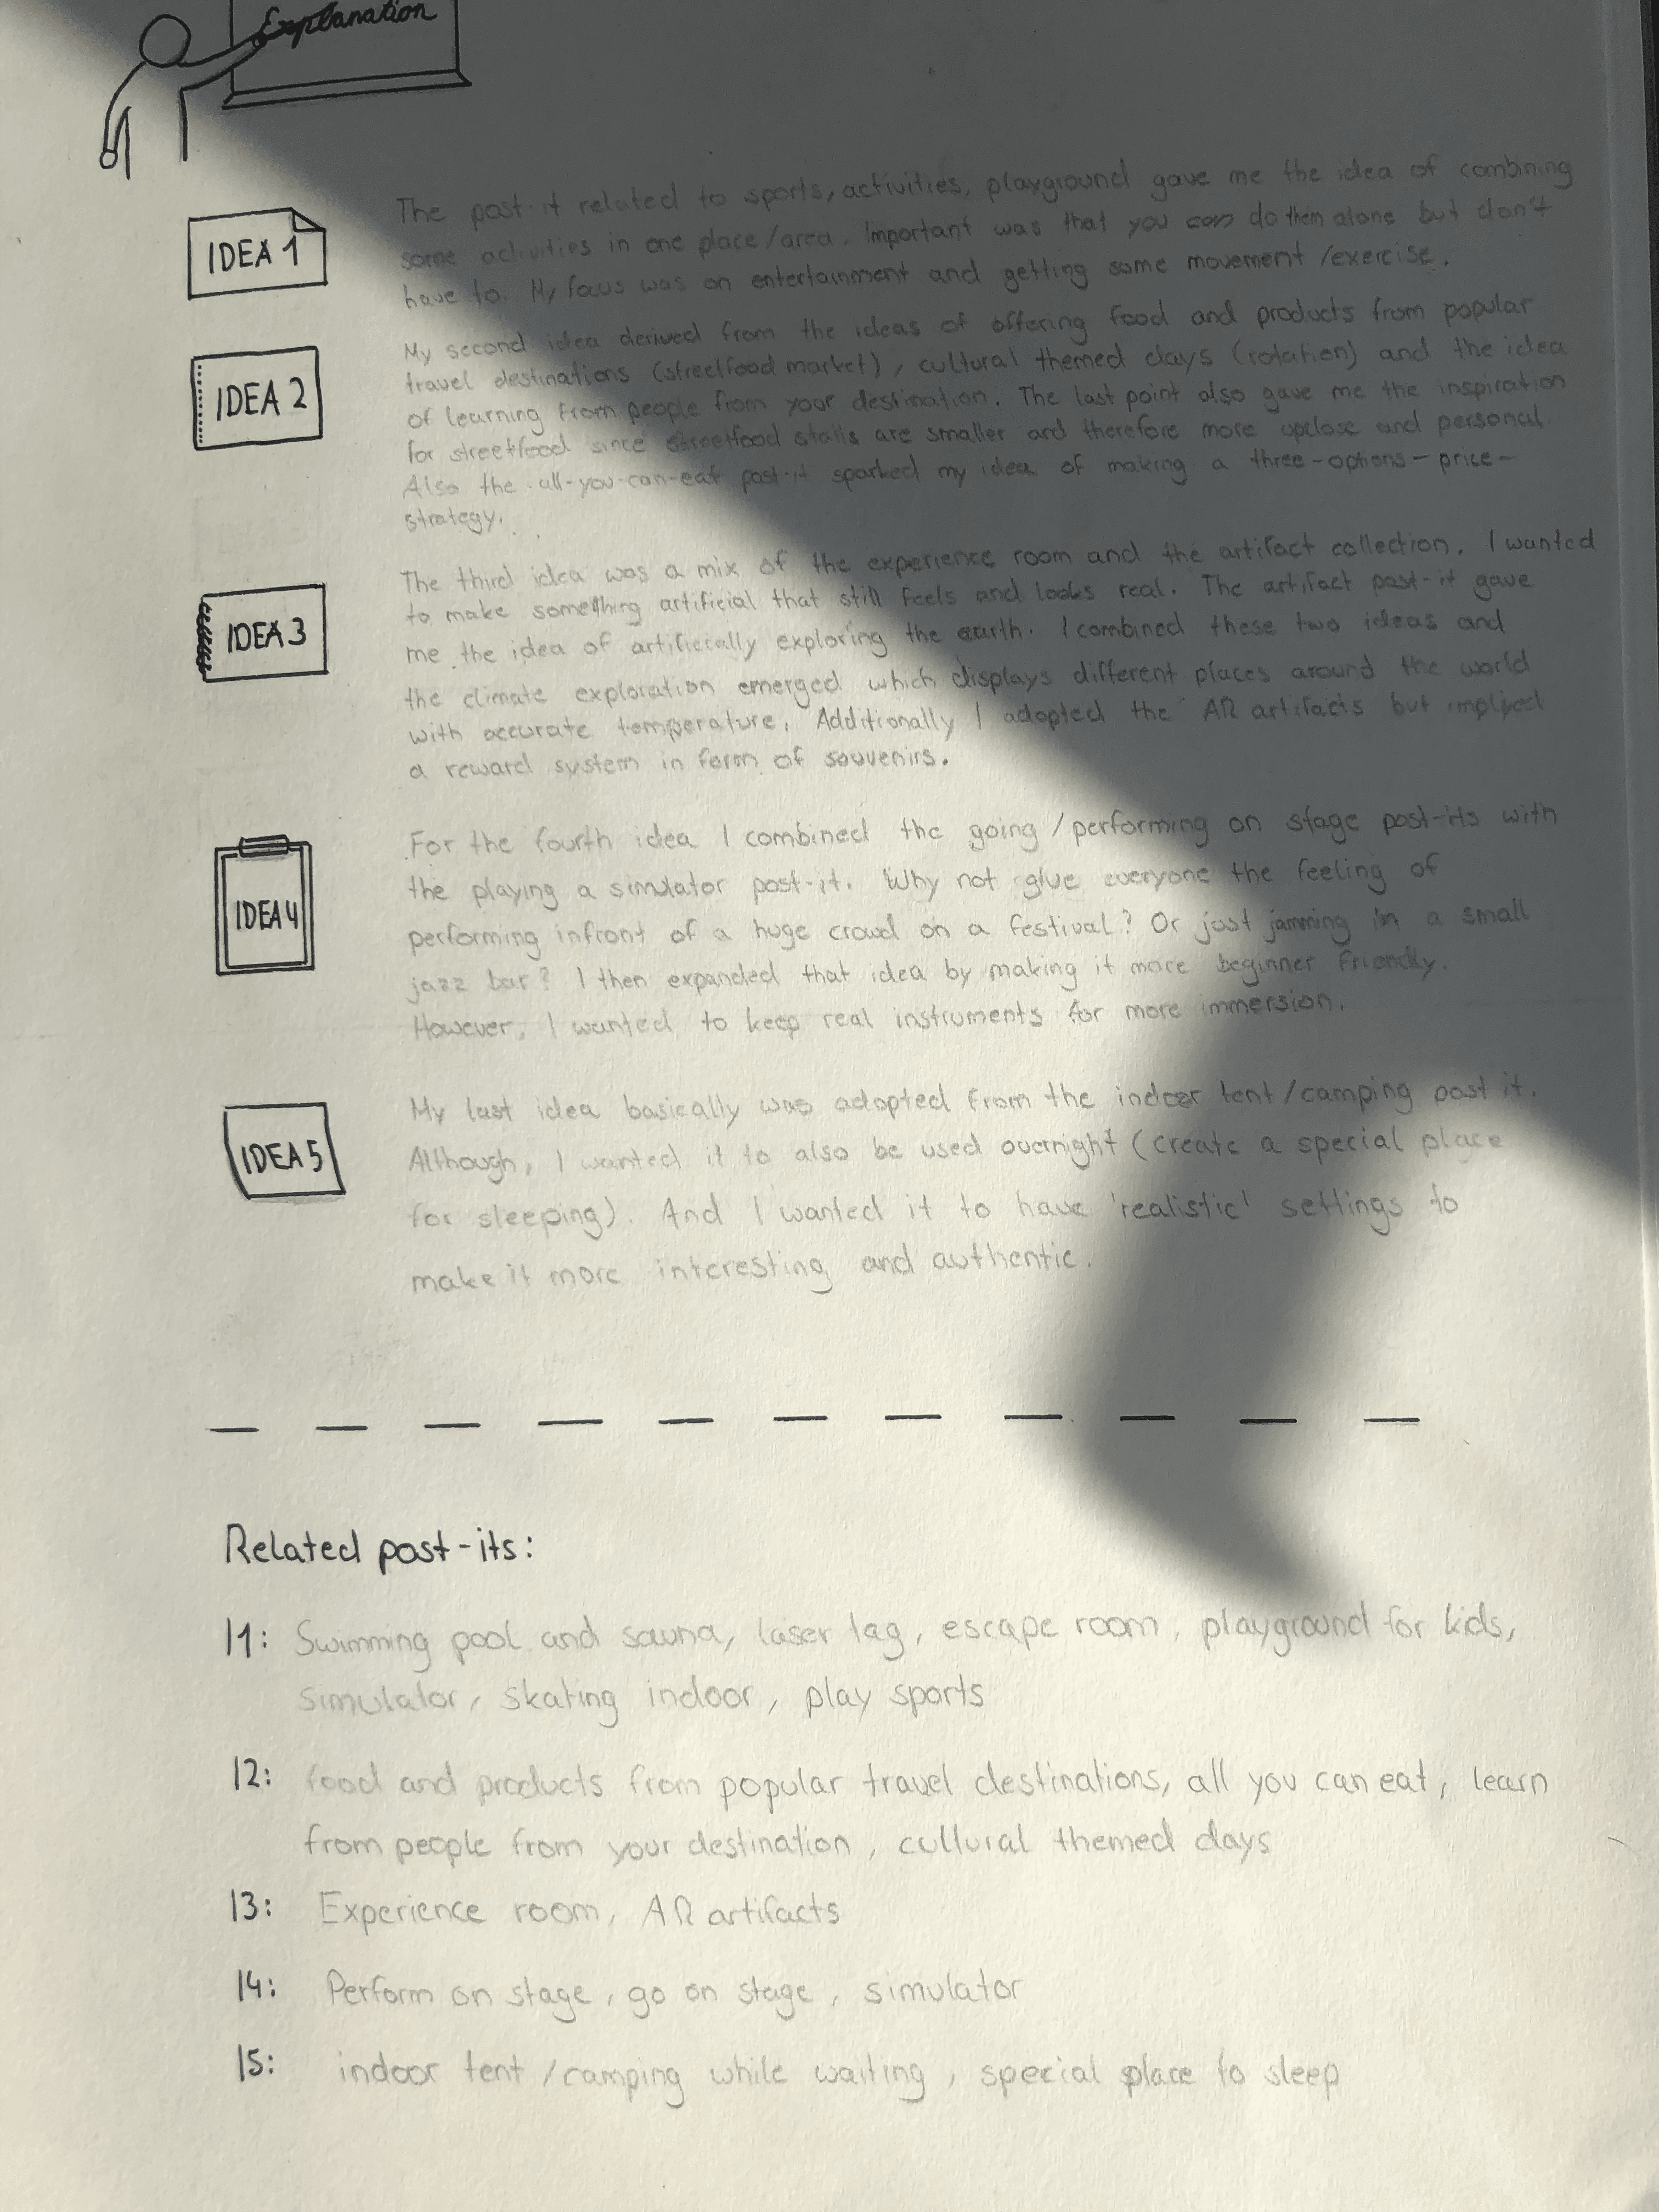 Explanation
IDEA 1
The post-it related to sports, activities, playground gave me the idea of combining
some activities in one place/area. Important was that you can do them alone but don't
have to. My focus was on entertainment and getting some movement/exercise.
IDEA 2
My second idea derived from the ideas of offering food and products from popular
travel destinations (streetfood market), cultural themed days (rotation) and the idea
of learning from people from your destination. The last point also gave me the inspiration
for streetfood since streetfood stalls are smaller and therefore more upclose and personal.
Also the all-you-can-eat post-it sparked my idea of making a three-options-price-
strategy.
IDEA 3
The third idea was a mix of the experience room and the artifact collection. I wanted
to make something artificial that still feels and looks real. The artifact post-it gave
me the idea of artificially exploring the earth. I combined these two ideas and
the climate exploration emerged which displays different places around the world
with accurate temperature. Additionally I adopted the AR artifacts but implied
a reward system in form of souvenirs.
IDEA 4
For the fourth idea I combined the going/performing on stage post-its with
the playing a simulator post-it. Why not give everyone the feeling of
performing infront of a huge crowd on a festival? Or just jamming in a small
jazz bar? I then expanded that idea by making it more beginner friendly.
However, I wanted to keep real instruments for more immersion.
IDEA 5
My last idea basically was adopted from the indoor tent/camping post it.
Although, I wanted it to also be used overnight (create a special place
for sleeping). And I wanted it to have 'realistic' settings to
make it more interesting and authentic.
Related post-its:
I1: Swimming pool and sauna, laser tag, escape room, playground for kids,
simulator, skating indoor, play sports
I2: food and products from popular travel destinations, all you can eat, learn
from people from your destination, cultural themed days
I3: Experience room, AR artifacts
I4: Perform on stage, go on stage, simulator
I5: indoor tent/camping while waiting, special place to sleep